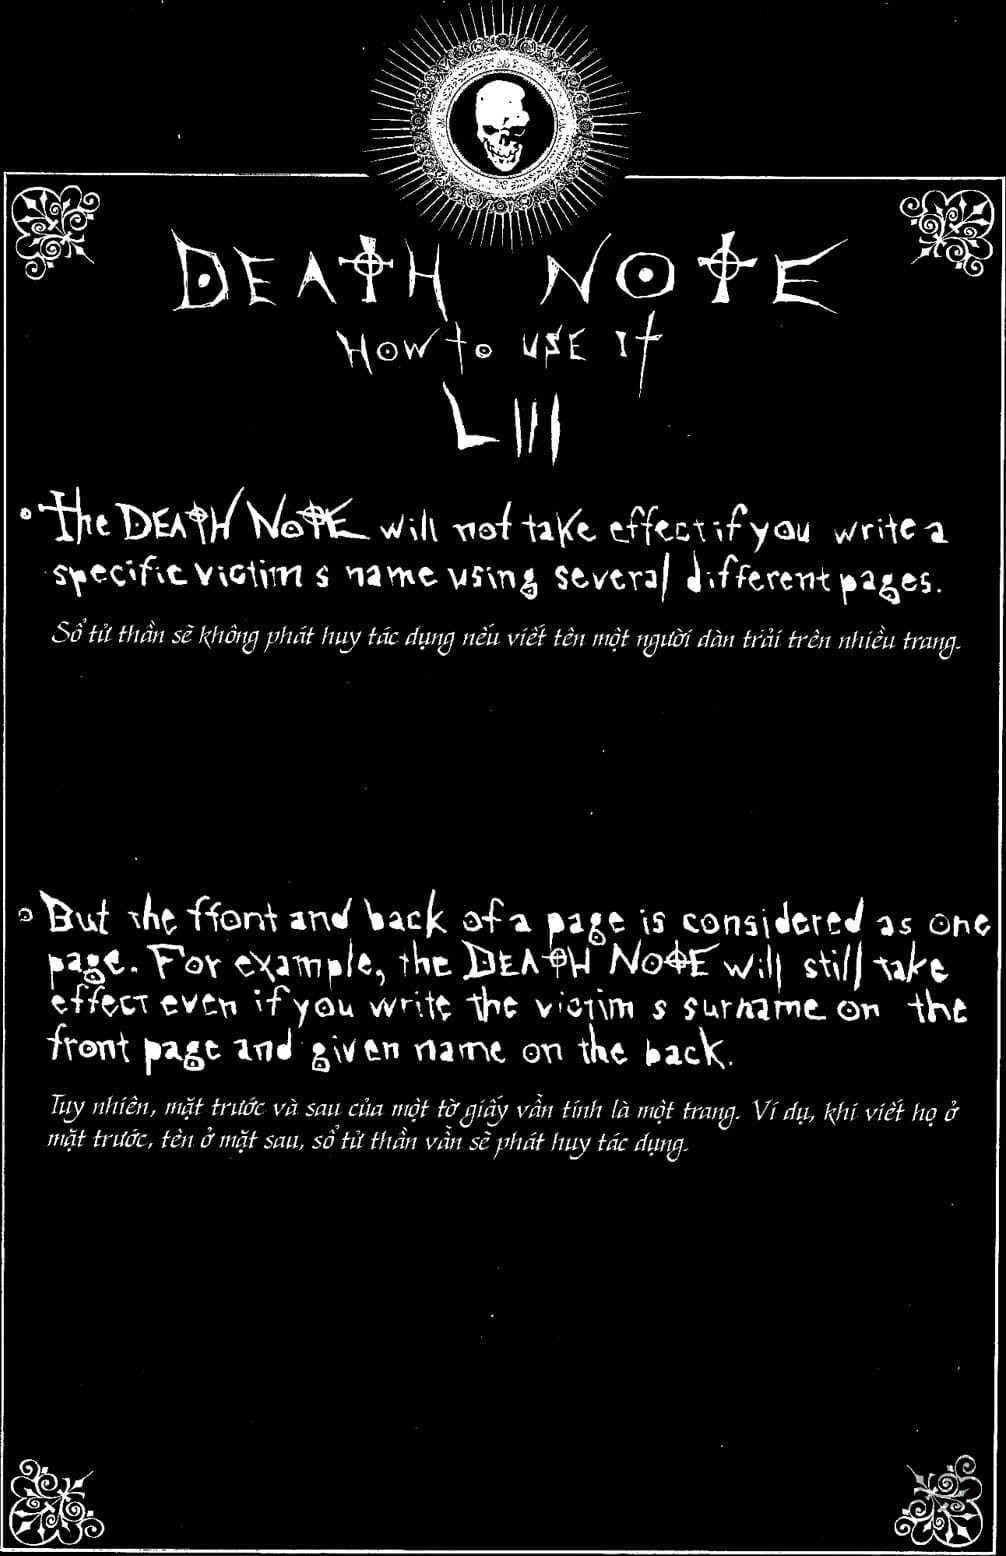 DEATH NOTE
HOW to USE It
LIII
• The DEATH NOTE will not take effect if you write a
specific victim s name using several different pages.
Sổ tử thần sẽ không phát huy tác dụng nếu viết tên một người dàn trải trên nhiều trang.
• But the ffont and back of a page is considered as one
page. For example, the DEATH NOTE will still take
effect even if you write the victim s surname on the
front page and given name on the back.
Tuy nhiên, mặt trước và sau của một tờ giấy vẫn tính là một trang. Ví dụ, khi viết họ ở
mặt trước, tên ở mặt sau, sổ tử thần vẫn sẽ phát huy tác dụng.